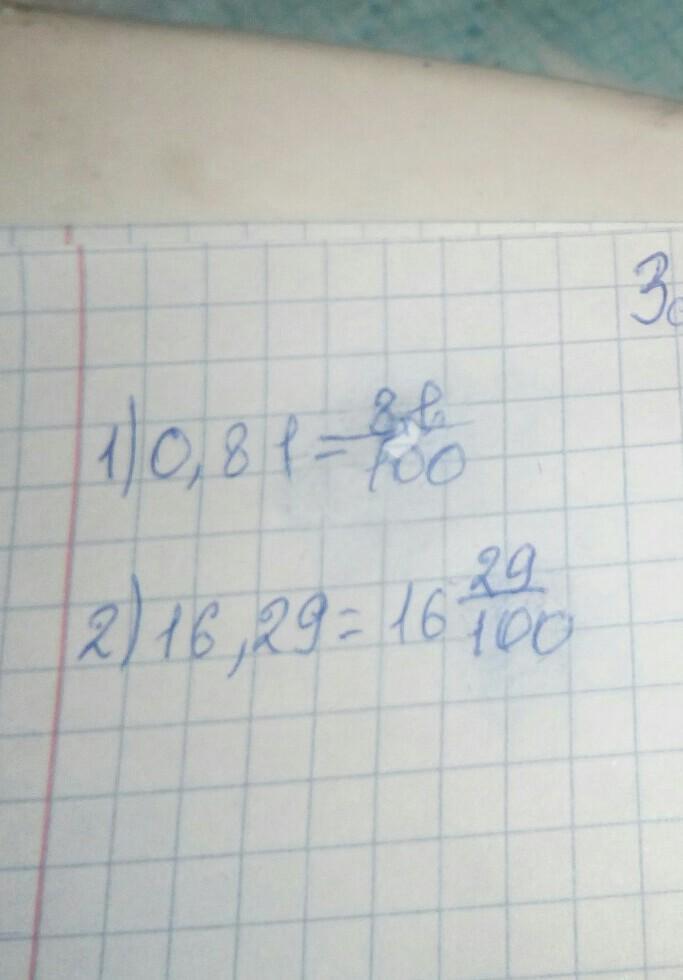 1) 0,81 = 81/100
2) 16,29 = 16 29/100